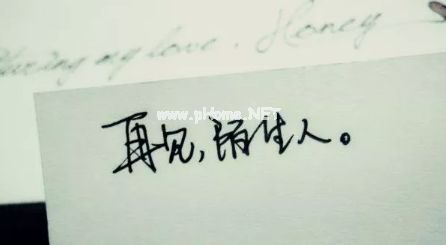 my love. Honey
www.pHome.NET
再见,陌生人。